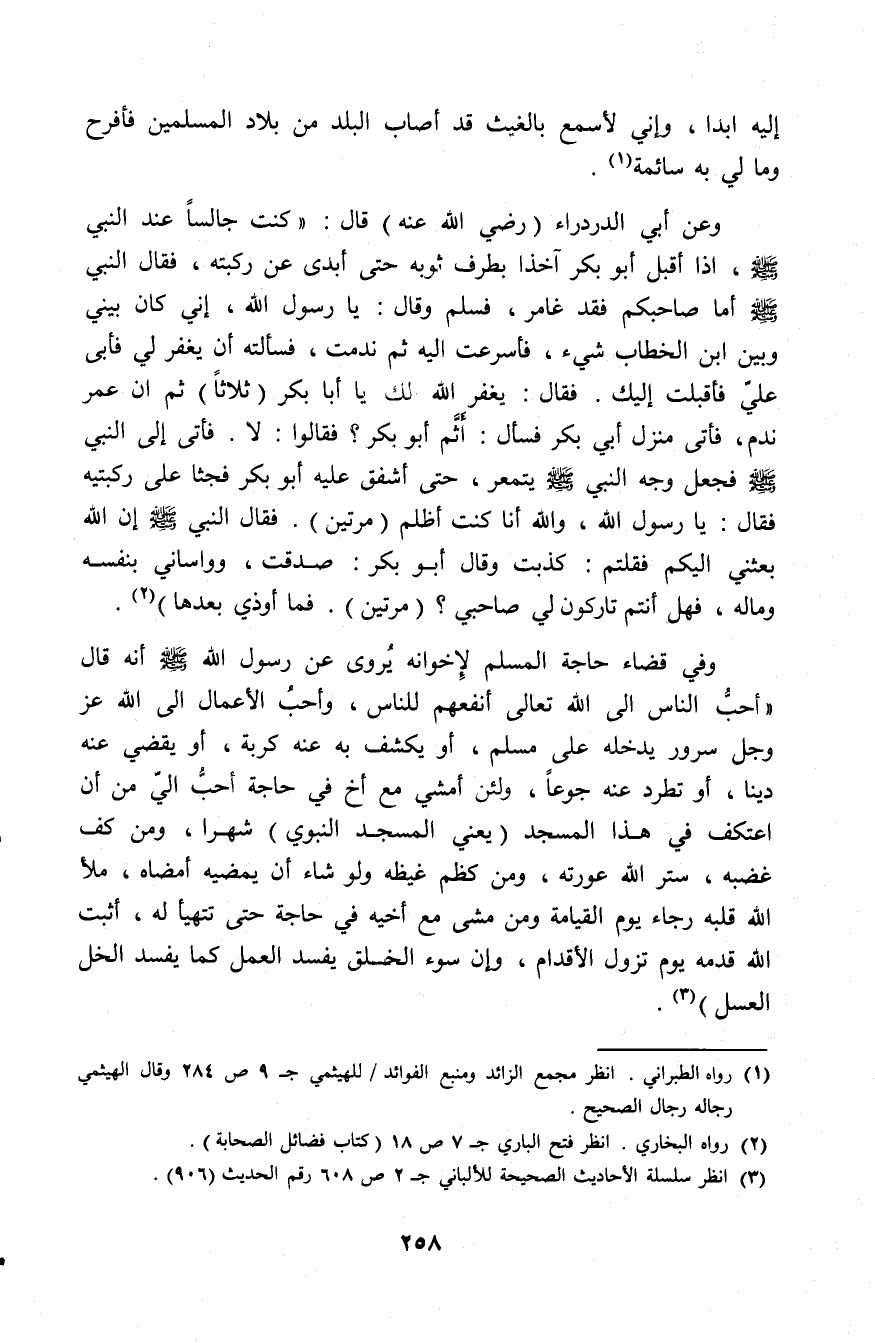 إليه ابدا ، وإني لأسمع بالغيث قد أصاب البلد من بلاد المسلمين فأفرح
وما لي به سائمة(١) .
وعن أبي الدرداء ( رضي الله عنه ) قال : « كنت جالساً عند النبي
ﷺ ، اذا أقبل أبو بكر آخذا بطرف ثوبه حتى أبدى عن ركبته ، فقال النبي
ﷺ أما صاحبكم فقد غامر ، فسلم وقال : يا رسول الله ، إني كان بيني
وبين ابن الخطاب شيء ، فأسرعت اليه ثم ندمت ، فسألته أن يغفر لي فأبى
عليّ فأقبلت إليك . فقال : يغفر الله لك يا أبا بكر ( ثلاثاً ) ثم ان عمر
ندم، فأتى منزل أبي بكر فسأل : أَثَّم أبو بكر ؟ فقالوا : لا . فأتى إلى النبي
ﷺ فجعل وجه النبي ﷺ يتمعر ، حتى أشفق عليه أبو بكر فجثا على ركبتيه
فقال : يا رسول الله ، والله أنا كنت أظلم ( مرتين ) . فقال النبي ﷺ إن الله
بعثني اليكم فقلتم : كذبت وقال أبـو بكر : صـدقت ، وواساني بنفسـه
وماله ، فهل أنتم تاركون لي صاحبي ؟ ( مرتين ) . فما أوذي بعدها )(٢) .
وفي قضاء حاجة المسلم لإِخوانه يُروى عن رسول الله ﷺ أنه قال
« أحبُّ الناس الى الله تعالى أنفعهم للناس ، وأحبُ الأعمال الى الله عز
وجل سرور يدخله على مسلم ، أو يكشف به عنه كربة ، أو يقضي عنه
دينا ، أو تطرد عنه جوعاً ، ولئن أمشي مع أخ في حاجة أحبُّ اليّ من أن
اعتكف في هـذا المسجد ( يعني المسجـد النبوي ) شهـرا ، ومن كف
غضبه ، ستر الله عورته ، ومن كظم غيظه ولو شاء أن يمضيه أمضاه ، ملأ
الله قلبه رجاء يوم القيامة ومن مشى مع أخيه في حاجة حتى تتهيأ له ، أثبت
الله قدمه يوم تزول الأقدام ، وإن سوء الخـلق يفسد العمل كما يفسد الخل
العسل )(٣) .
(١) رواه الطبراني . انظر مجمع الزائد ومنبع الفوائد / للهيثمي جـ ٩ ص ٢٨٤ وقال الهيثمي
رجاله رجال الصحيح .
(٢) رواه البخاري . انظر فتح الباري جـ ٧ ص ١٨ ( كتاب فضائل الصحابة ) .
(٣) انظر سلسلة الأحاديث الصحيحة للألباني جـ ٢ ص ٦٠٨ رقم الحديث (٩٠٦) .
٢٥٨